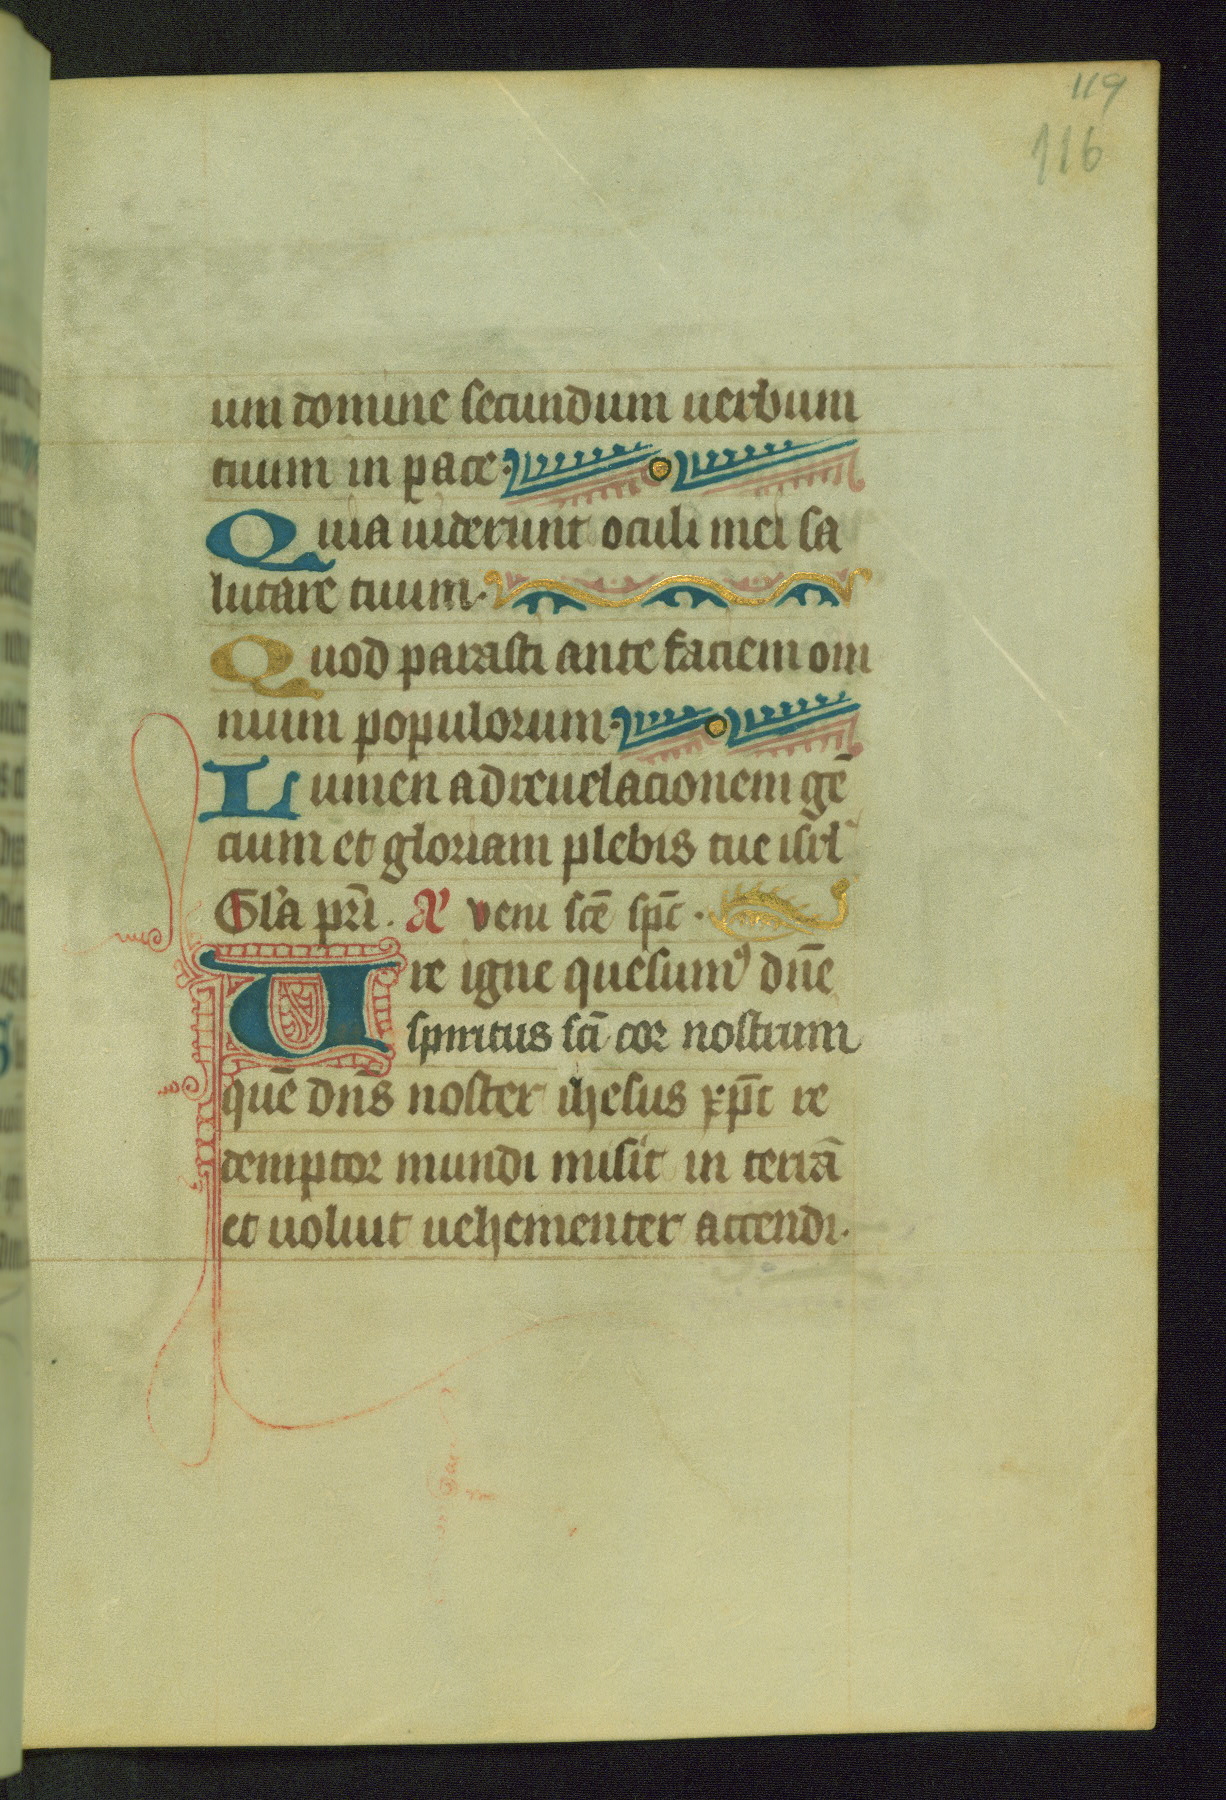 119
116
um domine secundum uerbum
tuum in pace·
Quia uiderunt oculi mei sa
lutare tuum·
Quod parasti ante faciem om
nium populorum·
Lumen ad reuelacionem gē
cium et gloriam plebis tue isrl̄
Gl'a pr̄i. A' veni sc̄e sp̄c·
Ure igne quesumꝰ dn̄e
spiritus sc̄i cor nostrum
quē dn̄s noster ihesus xp̄c re
demptor mundi misit in terrā
et uoluit uehementer accendi·